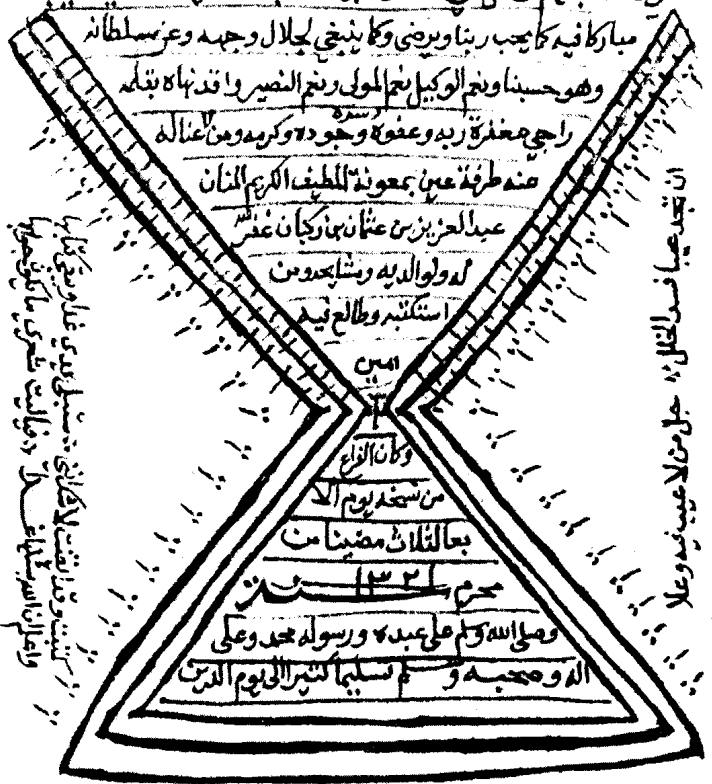 مباركا فيه كما يحب ربنا ويرضى وكما ينبغي لجلال وجهه وعز سلطانه
وهو حسبنا ونعم الوكيل نعم المولى ونعم النصير وا قد نهاه بقلمه
راجي مغفرة ربه وعفوه وجوده وكرمه ومن لا غنا له
عنه طرفة عين بمعونة اللطيف الكريم المنان
عبد العزيز بن عثمان بن ركبان غفر الله
له ولوالديه ومشايخه ومن
استكتبه وطالع فيه
امين
وكان الفراغ
من نسخه يوم الا
بعا لثلاث مضين من
محرم سنة ١٣٢١
وصلى الله وسلم على عبده ورسوله محمد وعلى
اله وصحبه وسلم تسليما كثيرا الى يوم الدين
ان تجد عيبا فسد الخللا جل من لا عيب فيه وعلا
كتبت وقد ايقنت لا شك انني ستبلى يدي غدا ويبقى كتابها
واعلم ان الله سائلها غدا فياليت شعري ما يكون جوابها